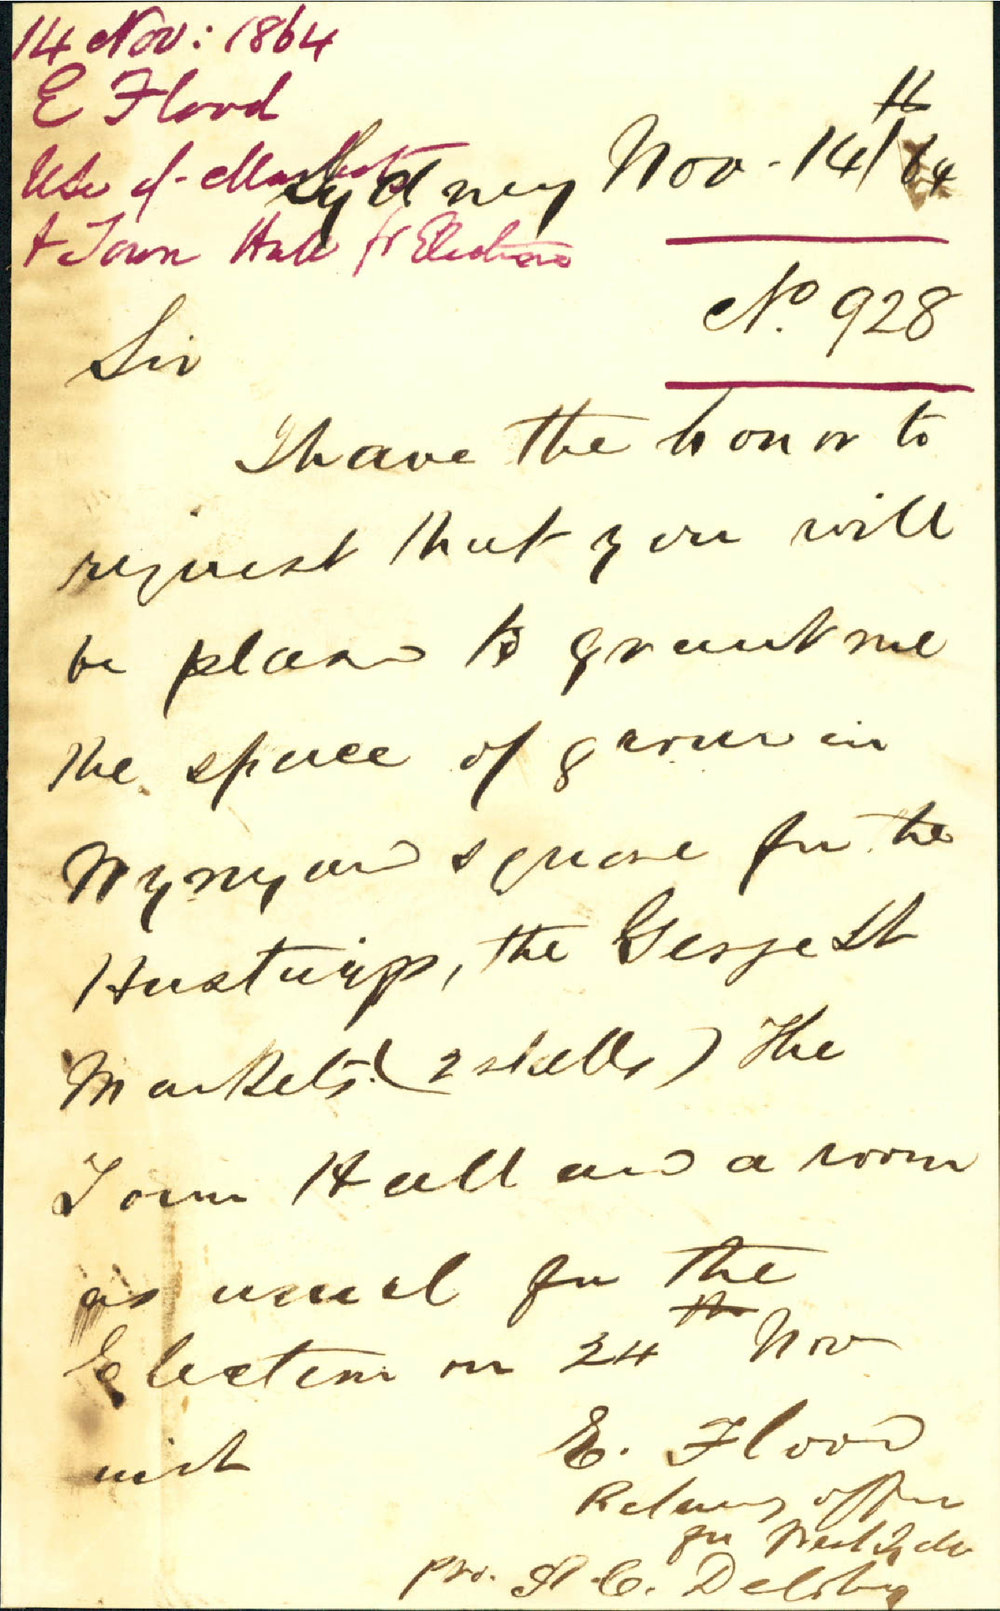 14 Nov: 1864
E Flood
Use of Markets
& Town Hall for Elections
Sydney Nov. 14th/64
No. 928
Sir
I have the honor to
request that you will
be pleased to grant me
the space of ground in
Wynyard Square for the
Hustings, the George St
Markets (2 stalls) The
Town Hall and a room
as usual for the
Election on 24th Nov
inst
E. Flood
Returning officer
for West Sydney
pro. C.